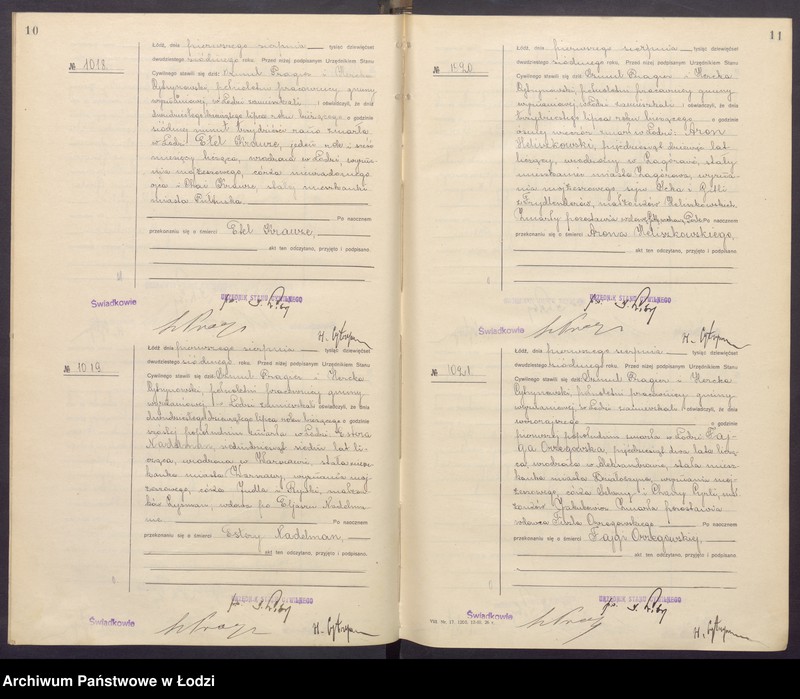 10
№ 1018.
Łódź, dnia pierwszego sierpnia tysiąc dziewięćset
dwudziestego siódmego roku. Przed niżej podpisanym Urzędnikiem Stanu
Cywilnego stawili się dziś: Szmul Prager i Hercka
Rybynowski, pełnoletni pracownicy gminy
wyznaniowej w Łodzi zamieszkali i oświadczyli, że dnia
dwudziestego dziewiątego lipca roku bieżącego o godzinie
siódmej minut trzydzieści rano zmarła
w Łodzi Etel Krauze, jeden rok i sześć
miesięcy licząca, urodzona w Łodzi, wyzna-
nia mojżeszowego, córka niewiadomego
ojca i Krauze, stałej mieszkanki
miasta Pułtuska
Po naocznem
przekonaniu się o śmierci Etel Krauze,
akt ten odczytano, przyjęto i podpisano.
URZĘDNIK STANU CYWILNEGO
Świadkowie
№ 1019.
Łódź, dnia pierwszego sierpnia tysiąc dziewięćset
dwudziestego siódmego roku. Przed niżej podpisanym Urzędnikiem Stanu
Cywilnego stawili się dziś: Szmul Prager i Hercka
Rybynowski, pełnoletni pracownicy gminy
wyznaniowej w Łodzi zamieszkali i oświadczyli, że dnia
dwudziestego dziewiątego lipca roku bieżącego o godzinie
szóstej popołudniu zmarła w Łodzi Estera
Nadelman, siedmdziesiąt siedm lat li-
cząca, urodzona w Warszawie, stała miesz-
kanka miasta Warszawy, wyznania moj-
żeszowego, córka Judki i Ryfki, małżon-
ków Ryfman, wdowa po Nadelma-
nie Po naocznem
przekonaniu się o śmierci Estery Nadelman,
akt ten odczytano, przyjęto i podpisano.
URZĘDNIK STANU CYWILNEGO
Świadkowie
11
№ 1020
Łódź, dnia pierwszego sierpnia tysiąc dziewięćset
dwudziestego siódmego roku. Przed niżej podpisanym Urzędnikiem Stanu
Cywilnego stawili się dziś: Szmul Prager i Hercka
Rybynowski, pełnoletni pracownicy gminy
wyznaniowej w Łodzi zamieszkali i oświadczyli, że dnia
trzydziestego lipca roku bieżącego o godzinie
ósmej wieczór zmarł w Łodzi Aron
Heliszkowski, pięćdziesiąt dziewięć lat
liczący, urodzony w Zagórowie, stały
mieszkaniec miasta Zagórowa, wyzna-
nia mojżeszowego, syn Icka i
z Frydlenderów, małżonków Heliszkowskich.
Zmarły pozostawił wdowę Po naocznem
przekonaniu się o śmierci Arona Heliszkowskiego,
akt ten odczytano, przyjęto i podpisano.
URZĘDNIK STANU CYWILNEGO
Świadkowie
№ 1021
Łódź, dnia pierwszego sierpnia tysiąc dziewięćset
dwudziestego siódmego roku. Przed niżej podpisanym Urzędnikiem Stanu
Cywilnego stawili się dziś: Szmul Prager i Hercka
Rybynowski, pełnoletni pracownicy gminy
wyznaniowej w Łodzi zamieszkali i oświadczyli, że dnia
wczorajszego o godzinie
pierwszej popołudniu zmarła w Łodzi Faj-
ga Orzegowska, pięćdziesiąt dwa lata liczą-
ca, urodzona w Aleksandrowie, stała miesz-
kanka miasta Działoszyna, wyznania moj-
żeszowego, córka i małż-
żonków Jakubowicz. Zmarła pozostawiła
wdowca Orzegowskiego Po naocznem
przekonaniu się o śmierci Fajgi Orzegowskiej,
akt ten odczytano, przyjęto i podpisano.
URZĘDNIK STANU CYWILNEGO
Świadkowie
Archiwum Państwowe w Łodzi